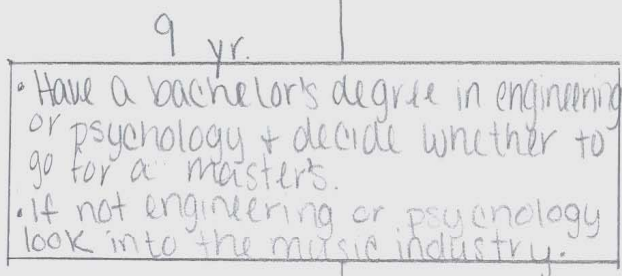 9 yr.
• Have a bachelor's degree in engineering
or psychology + decide whether to
go for a master's.
• If not engineering or psychology
look into the music industry.